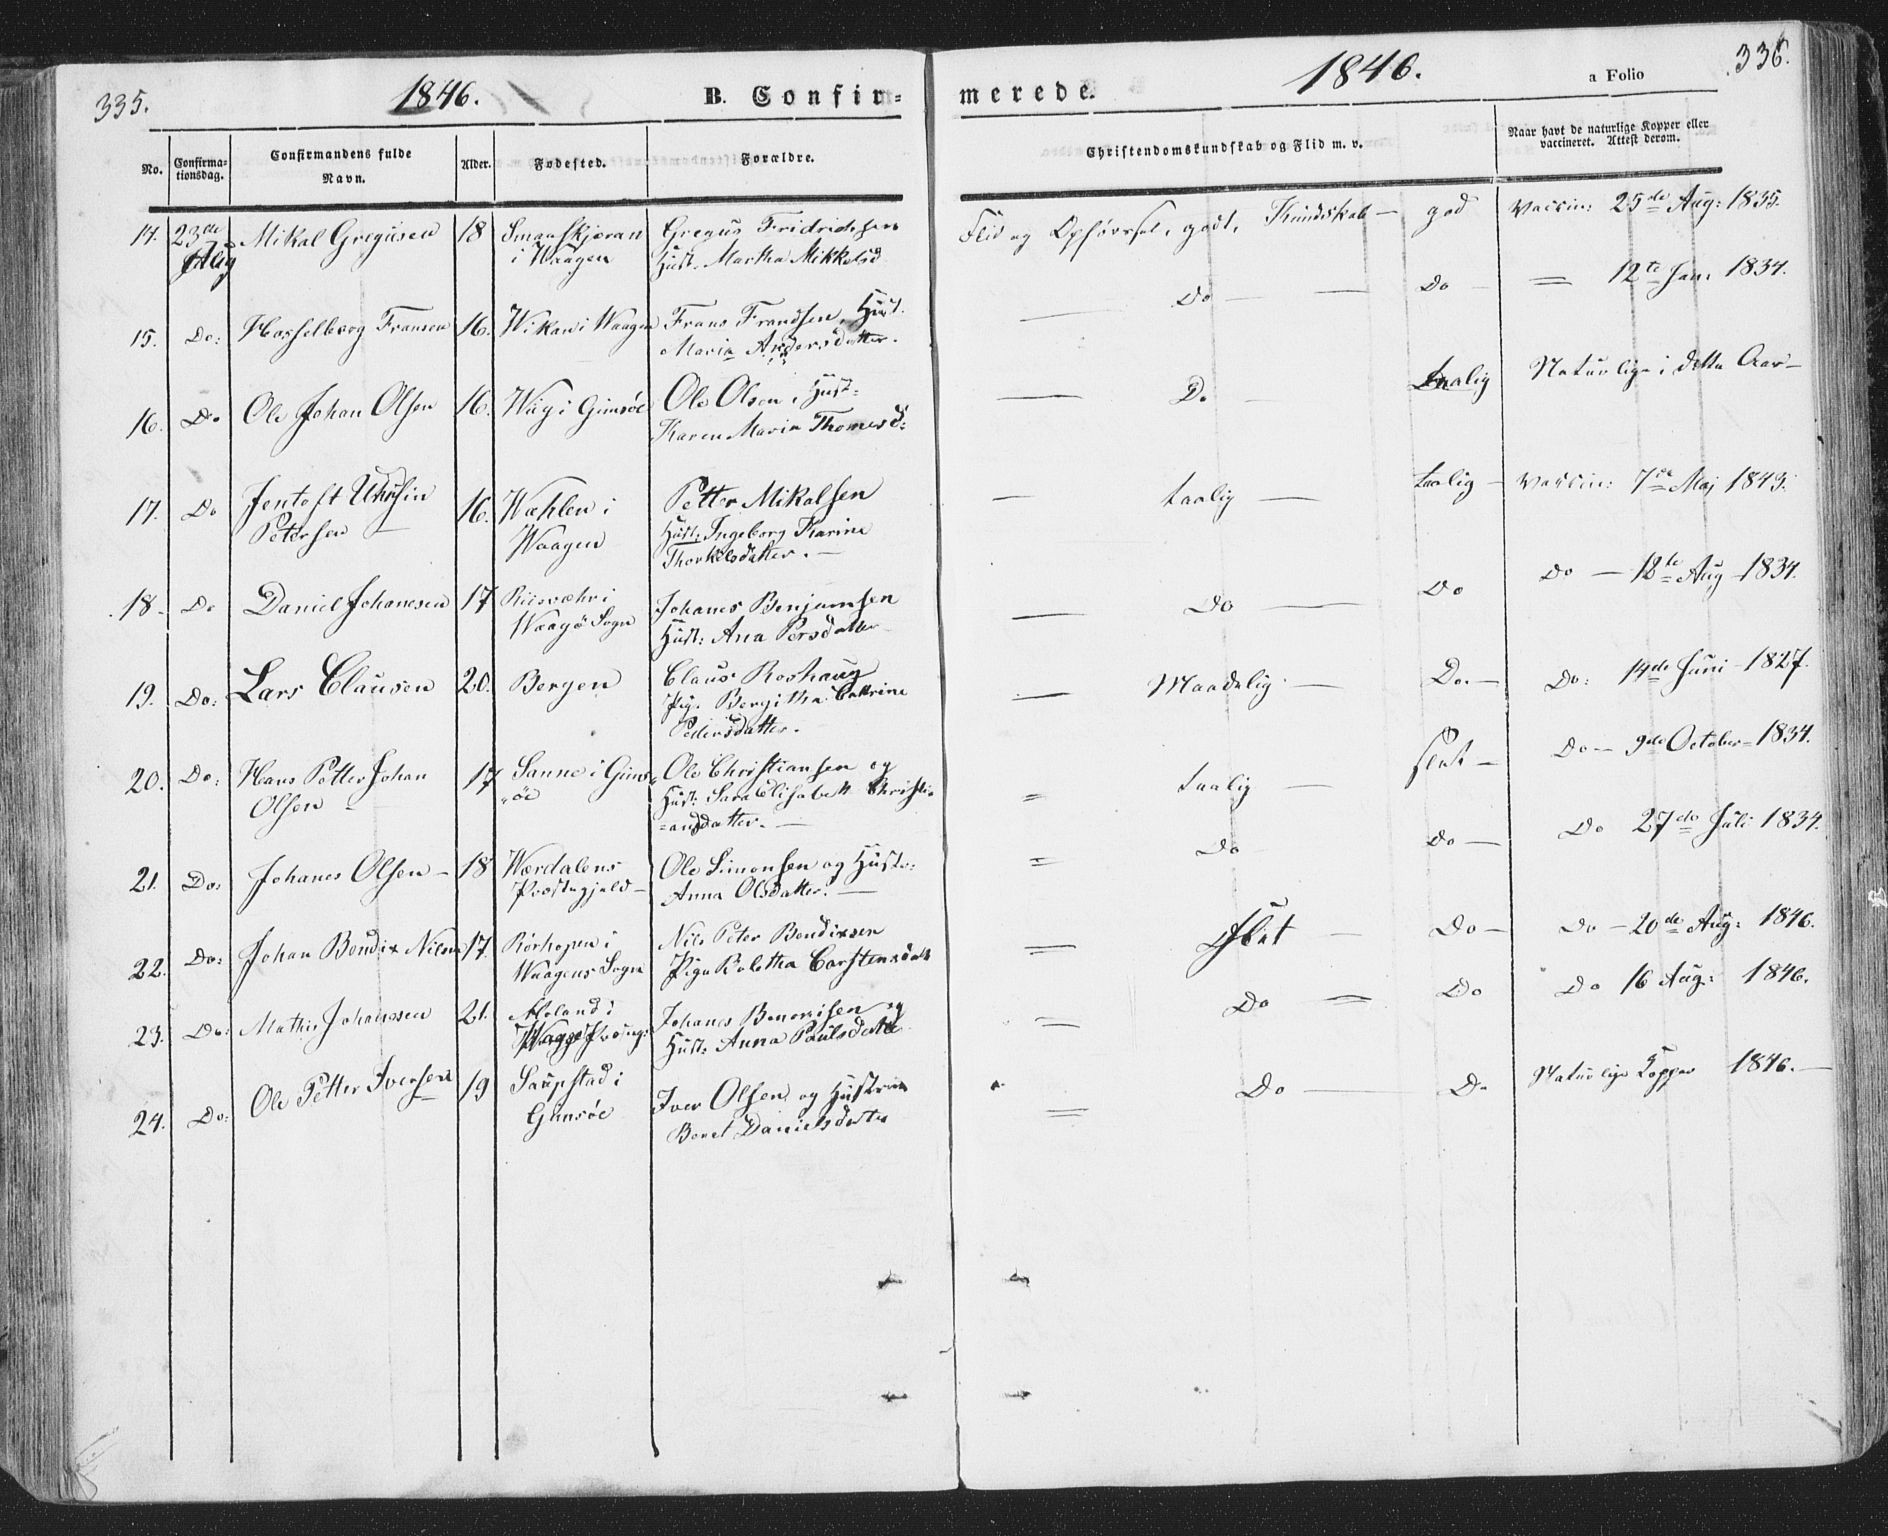 335.
1846.
B. Confir-
merede.
1846.
a Folio
336.
No.
Confirma-
tionsdag.
Confirmandens fulde
Navn.
Alder.
Fødested.
Forældre.
Christendomskundskab og Flid m. v.
Naar havt de naturlige Kopper eller
vaccineret. Attest derom.
14. 23de Mikal Gregusen 18 Gregus Fridrichsen Flid og Opførsel, godt, Kundskab — god Vaccin: 25de Aug: 1835.
i Waagen Hust. Martha Mikkelsd
Do — — Do — = 12te Jan: 1834.
15. Do: Hasselberg Fransen 16. Wikan i Waagen Frans Frandsen, Hust.
Maria Andersdatter.
16. Do Ole Johan Olsen 16. i Gimsøe Ole Olsen, Hust: — Do — taalig Naturlige i dette Aar —
Karen Maria Thomesd:
17. Do Jentoft 16. Wæhlen i Petter Mikalsen — taalig — taalig — Vaccin: 7de Maj 1843.
Petersen — Waagen Hust: Ingeborg Karine
Thorkelsdatter. —
18. Do Daniel Johanesen 17 i Johanes Benjamsen — Do — Do Do — 12te Aug 1834.
Waagø Sogn Hust: Ana Persdatter
19. Do: Lars Clausen 20. Bergen Claus — Maadelig — Do. — Do: 14de Juni 1827.
Pig. Catrine
Pedersdatter.
20. Do: Hans Petter Johan 17 Sanne i Gims- Ole Christiansen og = taalig — slet — Do — 9de October 1834.
Olsen — øe Hust: Sara Elisabeth Christi-
=ansdatter. —
21. Do: Johanes Olsen — 18 Værdalens Ole Simonsen og Hustr: = Do Do — Do 27de Juli 1834.
Præstegjeld — Anna Olsdatter. —
22. Do: Johan Bendix Nilsen 17. Rørhopen i Nils Peter Bendixsen = slet — Do — Do — 20de Aug: 1846.
Waagens Sogn Pige Carstensdatt
23. Do: Mathis Johanesen 21. i Johanes og = Do = Do Do 16 Aug: 1846.
Hust: Anna Paulsdatter
24. Do: Ole Petter Iversen 19 Saupstad i Iver Olsen og Hustrue = Do — Do Naturlige Kopper 1846. —
Gimsøe Beret Danielsdatter